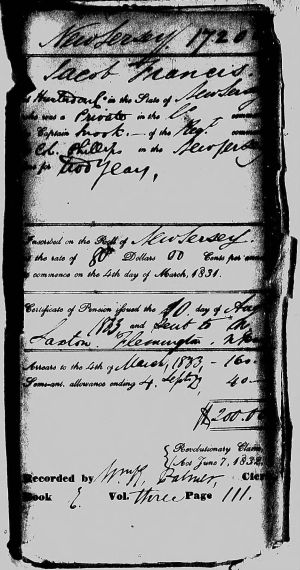 New Jersey 1720
Jacob Francis.
in the State of New Jersey
who was a Private in the Co
Captain Mook — of the Regt
Col. Phillips in the New Jersey
for two Year,
Inscribed on the Roll of New Jersey.
the rate of 80 Dollars 00 Cents per
commence on the 4th day of March, 1831.
Certificate of Pension issued the 10 day of
1833, and sent to
Saxton, Flemington.
Arrears to the 4th of March, 1833, — 160
Semi-ant. allowance ending 4 Sept 40 —
$200.00
Revolutionary Claim
Act June 7, 1832.
Recorded by Palmer, Cler
Book E. Vol. three Page 111.